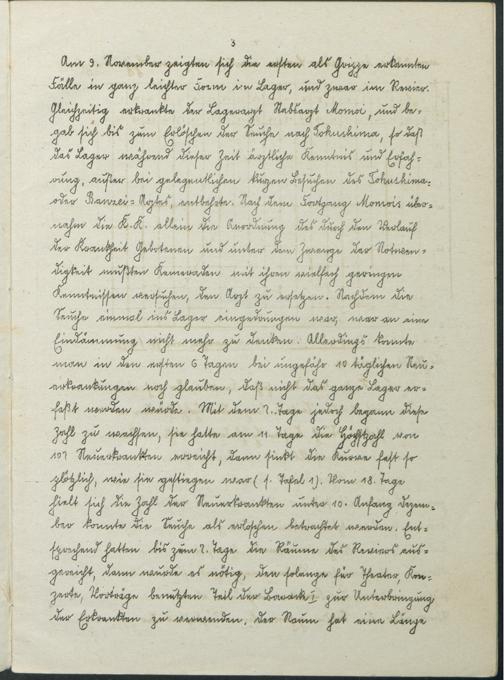 3
Am 9. November zeigten sich die ersten als Grippe erkannten
Fälle in ganz leichter Form im Lager, und zwar im Revier.
Gleichzeitig erkrankte der Lagerarzt Stabsarzt Momoi, und be-
gab sich bis zum Erlöschen der Seuche nach Tokushima, so daß
das Lager während dieser Zeit ärztliche Kenntnis und Erfah-
rung, außer bei gelegentlichen kurzen Besuchen des Tokushima-
oder Banzei-Arztes, entbehrte. Nach dem Fortgang Momois über-
nahm die K.K. allein die Anordnung des durch den Verlauf
der Krankheit Gebotenen und unter dem Zwange der Notwen-
digkeit mußten Kameraden mit ihren vielfach geringen
Kenntnissen versuchen, den Arzt zu ersetzen. Nachdem die
Seuche einmal ins Lager eingedrungen war, war an eine
Eindämmung nicht mehr zu denken. Allerdings konnte
man in den ersten 6 Tagen bei ungefähr 10 täglichen Neu-
erkrankungen noch glauben, daß nicht das ganze Lager er-
faßt werden würde. Mit dem 7. Tage jedoch begann diese
Zahl zu wachsen, sie hatte am 11. Tage die Höchstzahl von
107 Neuerkrankten erreicht, dann sinkt die Kurve fast so
plötzlich, wie sie gestiegen war (s. Tafel 1). Vom 18. Tage
hielt sich die Zahl der Neuerkrankten unter 10. Anfang Dezem-
ber konnte die Seuche als erloschen betrachtet werden. Ent-
sprechend hatten bis zum 7. Tage die Räume des Reviers aus-
gereicht, dann wurde es nötig, den solange für Theater, Kon-
zerte, Vorträge benutzten Teil der Barack 1 zur Unterbringung
der Erkrankten zu verwenden. Der Raum hat eine Länge